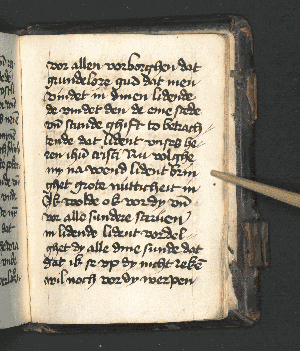 vor allen vorborghen dat
grundelose gud dat men
vindet in dinen lidende
de vindet den de eine stede
vnd stunde ghift to betrach
tende dat lident vnses he
ren ihesu cristi Nu volghe
my na wend lident brin
ghet grote nutticheit in
Ik wolde ok vor dy vnd
vor alle sundere sterven
in lidende lident vordel
ghet dy alle dine sunde dat
dat ik se vp dy nicht reken
wil noch vor dy werpen